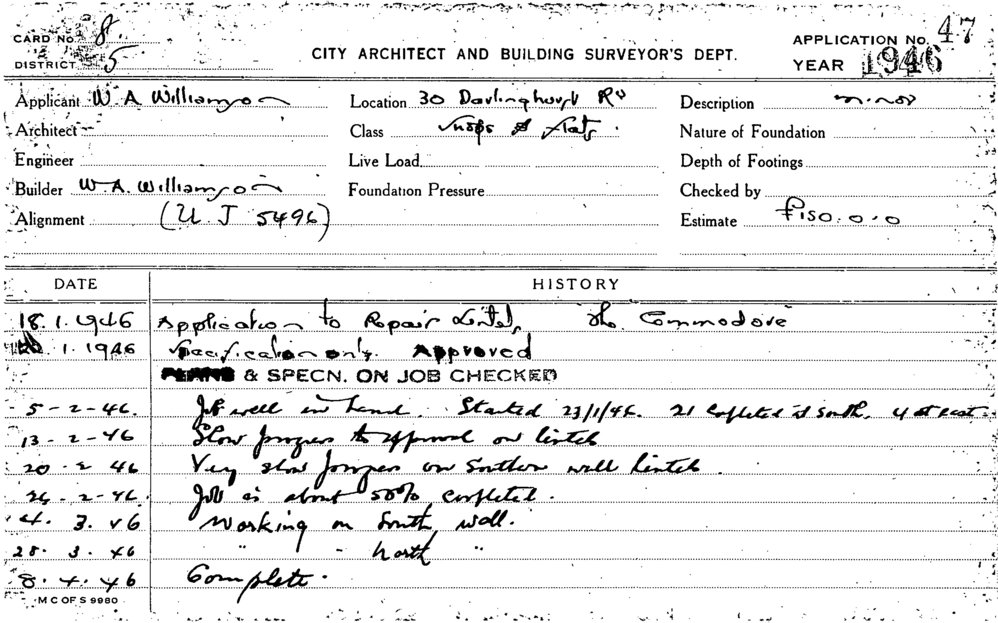 CARD No. 8.
DISTRICT 5
CITY ARCHITECT AND BUILDING SURVEYOR'S DEPT.
APPLICATION No. 47
YEAR 1946
Applicant W A Williamson
Location 30 Darlinghurst Rd
Description minor
Architect
Class Shops & flats.
Nature of Foundation
Engineer
Live Load
Depth of Footings
Builder W. A. Williamson
Foundation Pressure
Checked by
Alignment (U J 5496)
Estimate £150.0.0
DATE HISTORY
18.1.1946 Application to Repair Lintels, The Commodore
1.1946 Specification only. Approved
PLANS & SPECN. ON JOB CHECKED
5-2-46. Job well in hand. Started 23/1/46. 21 completed at South. 4 at east.
13-2-46 Slow progress on lintels
20-2 46 Very slow progress on Southern wall lintels.
26-2-46. Job is about 50% completed.
4. 3. 46 Working on South wall.
28. 3. 46 " " North "
8. 4. 46 Complete.
M C OF S 9980